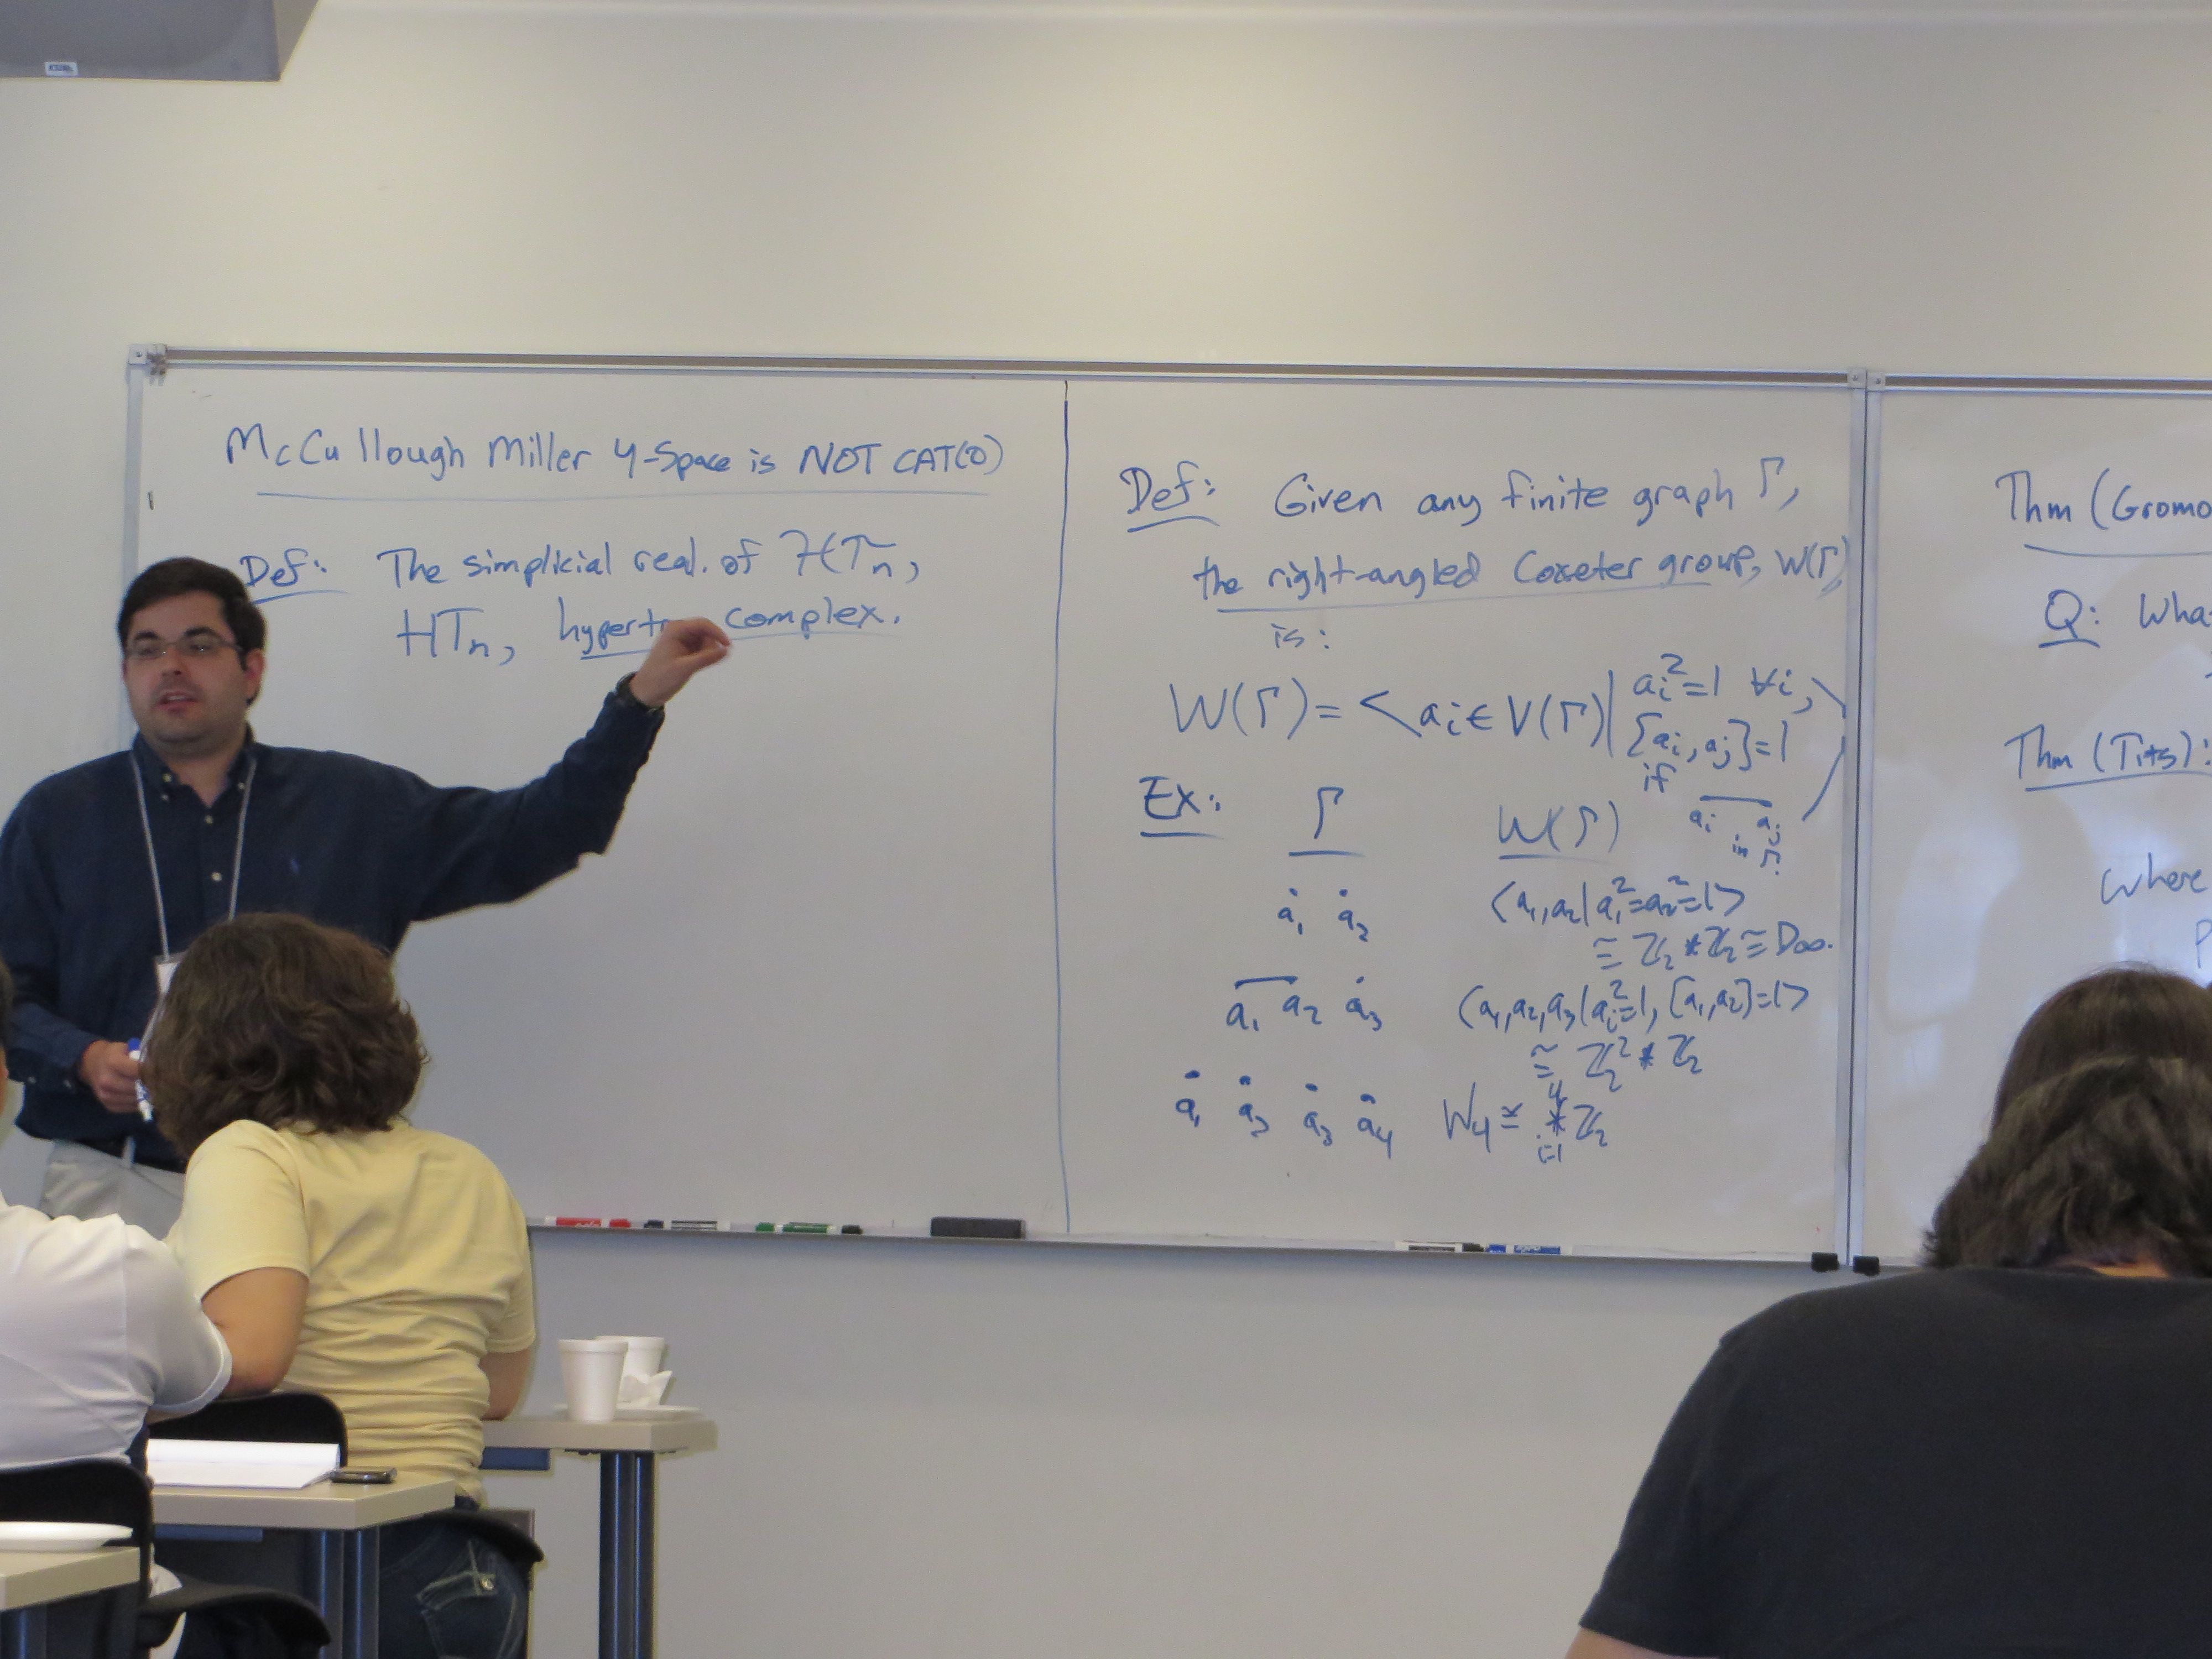 McCullough Miller 4-Space is NOT CAT(0)
Def: The simplicial real. of HTn,
HTn, complex.
Def: Given any finite graph Γ,
the right-angled Coxeter group, W(Γ),
is:
W(Γ) = <ai ∈ V(Γ) | ai²=1 ∀i,
[ai, aj]=1
if
ai aj
in Γ.
Ex: Γ W(Γ)
a1 a2 <a1,a2|a1²=a2²=1>
≅ Z2 * Z2 ≅ D∞.
a1 a2 a3 <a1,a2,a3|ai²=1, [a1,a2]=1>
≅ Z2² * Z2
a1 a2 a3 a4 W4 ≅ *⁴i=1 Z2
Thm (Gromo
Q: Wha
Thm (Tits):
where
P